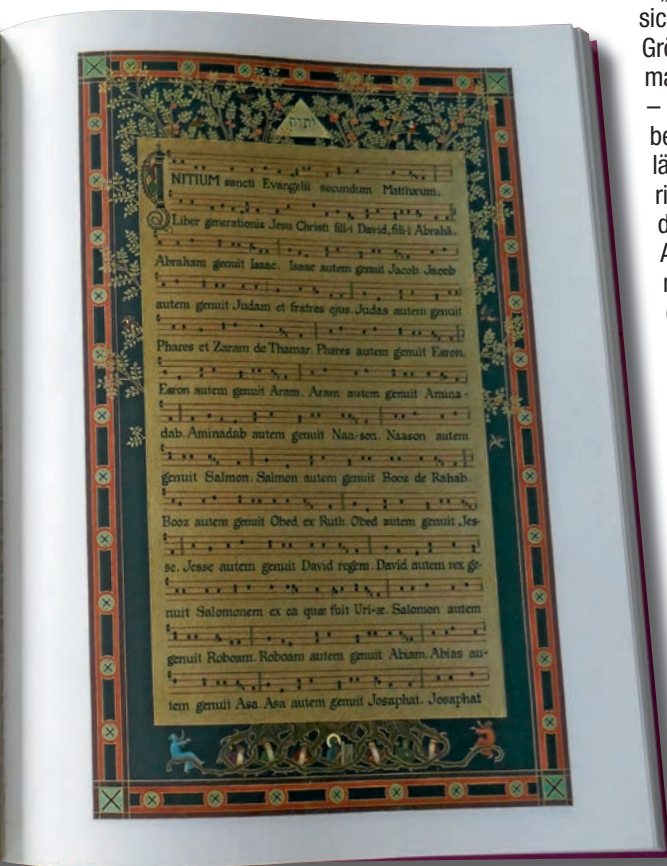 יהוה
INITIUM sancti Evangelii secundum Matthæum.
Liber generationis Jesu Christi fili-i David, fili-i Abrahã.
Abraham genuit Isaac. Isaac autem genuit Jacob. Jacob
autem genuit Judam et fratres ejus Judas autem genuit
Phares et Zaram de Thamar. Phares autem genuit Esron.
Esron autem genuit Aram. Aram autem genuit Amina-
dab. Aminadab autem genuit Naa-son. Naason autem
genuit Salmon. Salmon autem genuit Booz de Rahab.
Booz autem genuit Obed ex Ruth. Obed autem genuit Jes-
se. Jesse autem genuit David regem. David autem rex ge-
nuit Salomonem ex ea quæ fuit Uri-æ. Salomon autem
genuit Roboam. Roboam autem genuit Abiam. Abias au-
tem genuit Asa. Asa autem genuit Josaphat. Josaphat
sic
Grö
ma
–
be
lä
ri
d